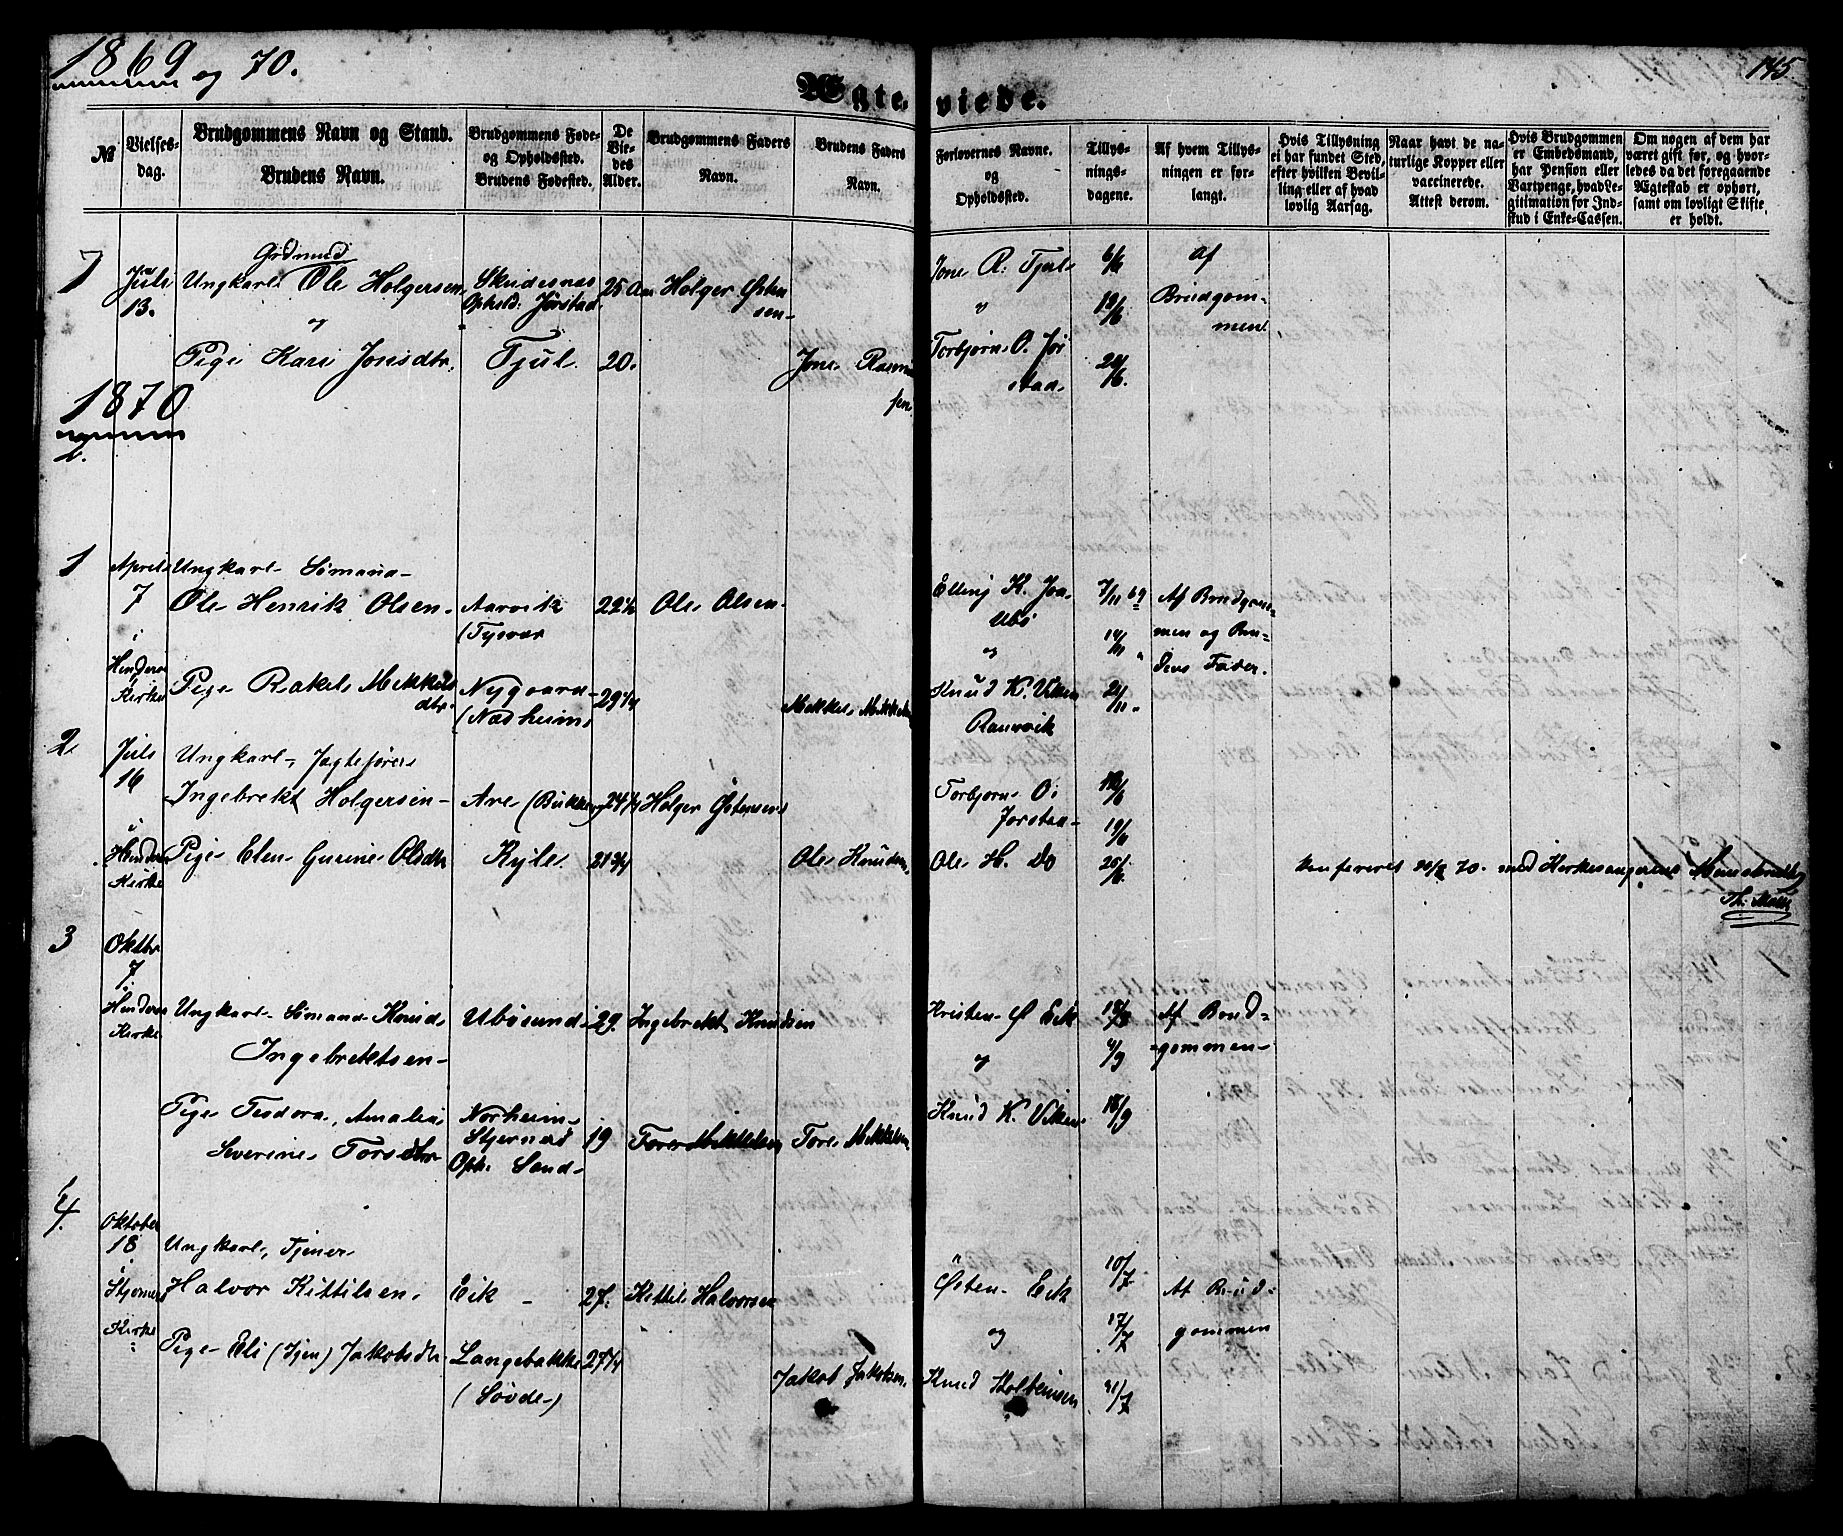 1869 og 70.
145
Ægteviede.
№
Vielses-dag.
Brudgommens Navn og Stand.
Brudens Navn.
Brudgommens Føde-
og Opholdssted.
Brudens Fødested.
De Vie-des Alder.
Brudgommens Faders
Navn.
Brudens Faders
Navn.
Forlovernes Navne.
og
Opholdssted.
Tillys-
nings-
dagene.
Af hvem Tillys-
ningen er for-
langt.
Hvis Tillysning
ei har fundet Sted,
efter hvilken Bevil-
ling eller af hvad
lovlig Aarsag.
Naar havt de na-
turlige Kopper eller
vaccinerede.
Attest derom.
Hvis Brudgommen
er Embedsmand,
har Pension eller
Vartpenge, hvad Le-
gitimation for Ind-
skud i Enke-Cassen.
Om nogen af dem har
været gift før, og hvor-
ledes da det foregaaende
Ægteskab er ophørt,
samt om lovligt Skifte
er holdt.
7
Juli
13.
Ungkarl Ole Holgersen
og
Pige Kari Jonsdtr.
Skudesnes
Ophold: Jørstad
Tjul
25 Aar
20.
Holger Østen
sen
Jone Rasmus
sen
Jone R. Tjul
og
Torbjørn O. Jør
stad
6/6
12/6
20/6.
Af
Brudgom-
men.
1870
1
April
7
i
Hinderaa
Kirke
Ungkarl Sømand
Ole Henrik Olsen
Pige Rakel Mikkels
dtr.
Aarvik
(Tysvær
Nygaard
(Nedheim
22½
29¼
Ole Olsen
Mikkel Mikkelsen
Elling K. Joa
Ubø
og
Knud K. Viken
7/11 69
14/11
21/11
Af Brudgom-
men og Bru-
dens Fader.
2
Juli
16
i
Hinderaa
Kirke
Ungkarl, Jagtefører
Ingebrekt Holgersen
Pige Elen Gurine Olsdtr
Are (Bukken)
Kyle
24¼
21¾
Holger Østensen
Ole Knudsen
Torbjørn O.
Jørstad
Ole H. Do
12/6
19/6
26/6.
Konfereret 70. med Kirkesangerens Ministerialbog
Th. Møller
3
Oktbr
7
i
Hinderaa
Kirke
Ungkarl Sømand Knud
Ingebrektsen
Pige Teodora, Amalia,
Severine Torsdtr
Ubøsund
Norheim
Stjernes
Oph: Sand
29.
19
Ingebrekt Knudsen
Tore Mikkelsen
Tore Mikkelsen
Kristen Ø Eik
og
Knud K. Viken
4/9
18/9
Af Brud-
gommen
4.
Oktober
18
i
Stjernes
Kirke
Ungkarl, Tjener
Halvor Kittilsen.
Pige Eli (Tjen) Jakobsdtr
Eik
Langebakke
(Søvde)
27.
27¼
Kittil Halvorsen
Jakob Jakobsen.
Østen Eik
og
Knud Kolbeinsen
10/7
17/7
Af Brud-
gommen